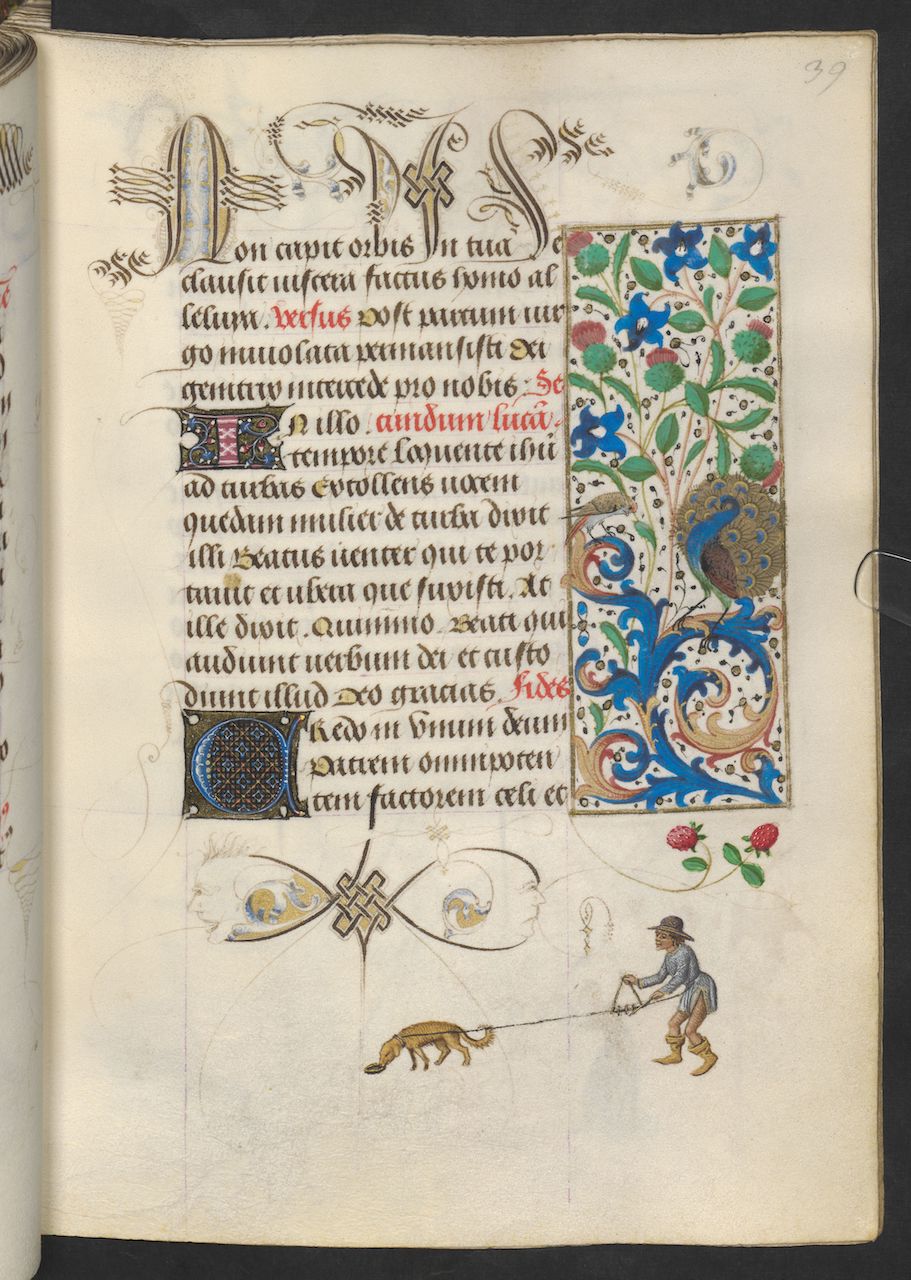 39
Non capit orbis In tua se
clausit viscera factus homo al
leluya. Versus Post partum vir
go inviolata permansisti Dei
genitrix intercede pro nobis. Se
IN illo. cundum lucā.
tempore Loquente ihū
ad turbas Extollens vocem
quedam mulier de turba dixit
illi Beatus venter qui te por
tavit et ubera que suxisti. At
ille dixit. Quinimo. Beati qui
audiunt verbum dei et custo
diunt illud Deo gracias. Fides
CRedo in Unum deum
Patrem omnipoten
tem factorem celi et